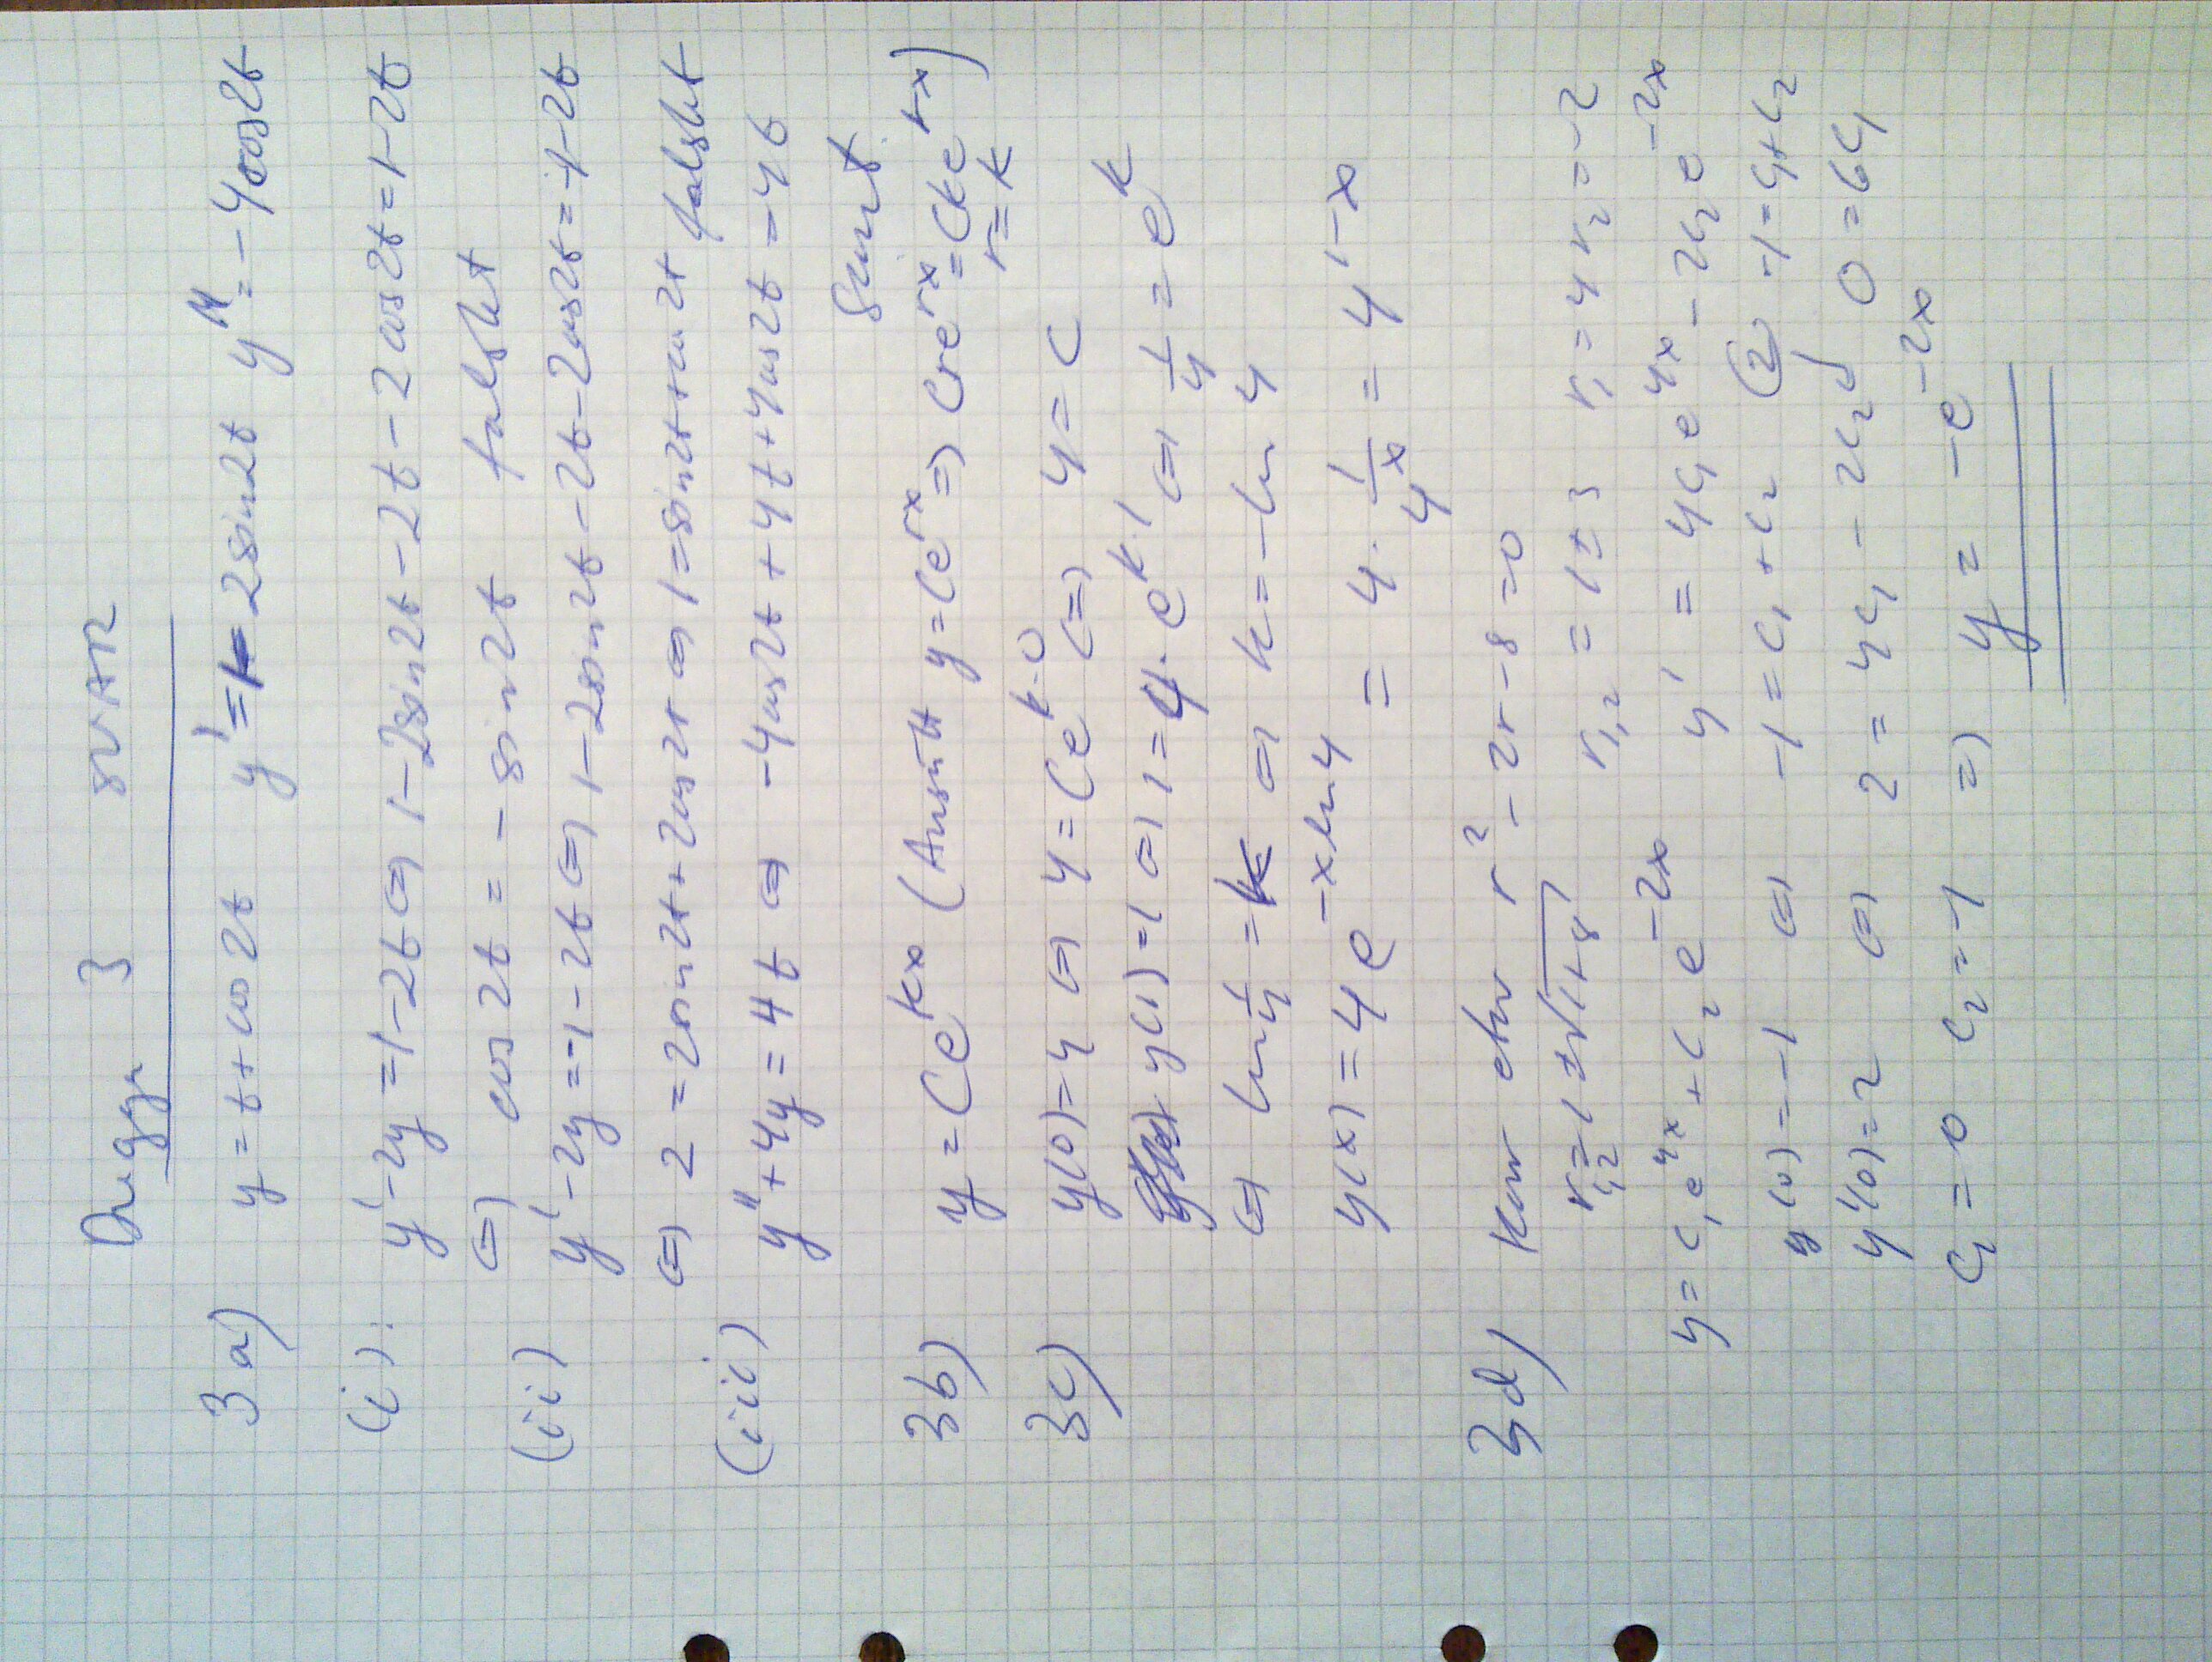 Dugga 3 SVAR
3a) y = t + cos 2t y' = 1 - 2 sin 2t y'' = -4 cos 2t
(i): y' - 2y = 1 - 2t ⇔ 1 - 2 sin 2t - 2t - 2 cos 2t = 1 - 2t
⇔ cos 2t = - sin 2t falskt
(ii) y' - 2y = -1 - 2t ⇔ 1 - 2 sin 2t - 2t - 2 cos 2t = -1 - 2t
⇔ 2 = 2 sin 2t + 2 cos 2t ⇔ 1 = sin 2t + cos 2t falskt
(iii) y'' + 4y = 4t ⇔ -4 cos 2t + 4t + 4 cos 2t = 4t
Sant
3b) y = Ce^{kx} (Ansatt y = Ce^{rx} ⇒ Cre^{rx} = Cke^{rx})
r = k
3c) y(0) = 4 ⇔ 4 = Ce^{k·0} ⇔ 4 = C
y(1) = 1 ⇔ 1 = 4·e^{k·1} ⇔ 1/4 = e^k
⇔ ln 1/4 = k ⇔ k = -ln 4
y(x) = 4e^{-x ln 4} = 4 · 1/4^x = 4^{1-x}
3d) Kar ekv r² - 2r - 8 = 0
r_{1,2} = 1 ± √(1+8) r_{1,2} = 1 ± 3 r_1 = 4 r_2 = -2
y = c_1e^{4x} + c_2e^{-2x} y' = 4c_1e^{4x} - 2c_2e^{-2x}
y(0) = -1 ⇔ -1 = c_1 + c_2 (2) -1 = c_1 + c_2
y'(0) = 2 ⇔ 2 = 4c_1 - 2c_2 0 = 6c_1
c_1 = 0 c_2 = -1 ⇒ y = -e^{-2x}